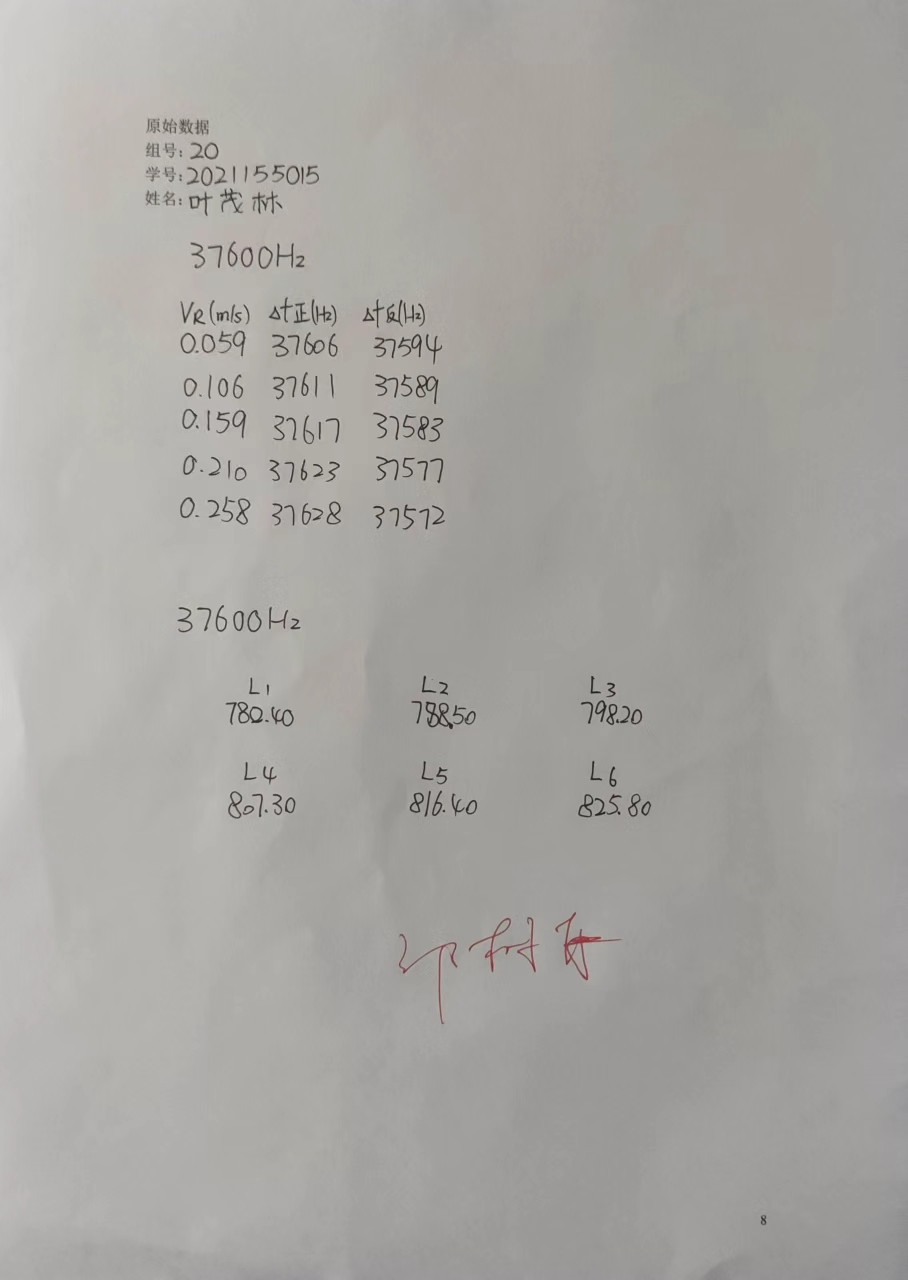 原始数据
组号: 20
学号: 2021155015
姓名: 叶茂林
37600Hz
VR(m/s) Δf正(Hz) Δf反(Hz)
0.059 37606 37594
0.106 37611 37589
0.159 37617 37583
0.210 37623 37577
0.258 37628 37572
37600Hz
L1 L2 L3
780.40 788.50 798.20
L4 L5 L6
807.30 816.40 825.80
8